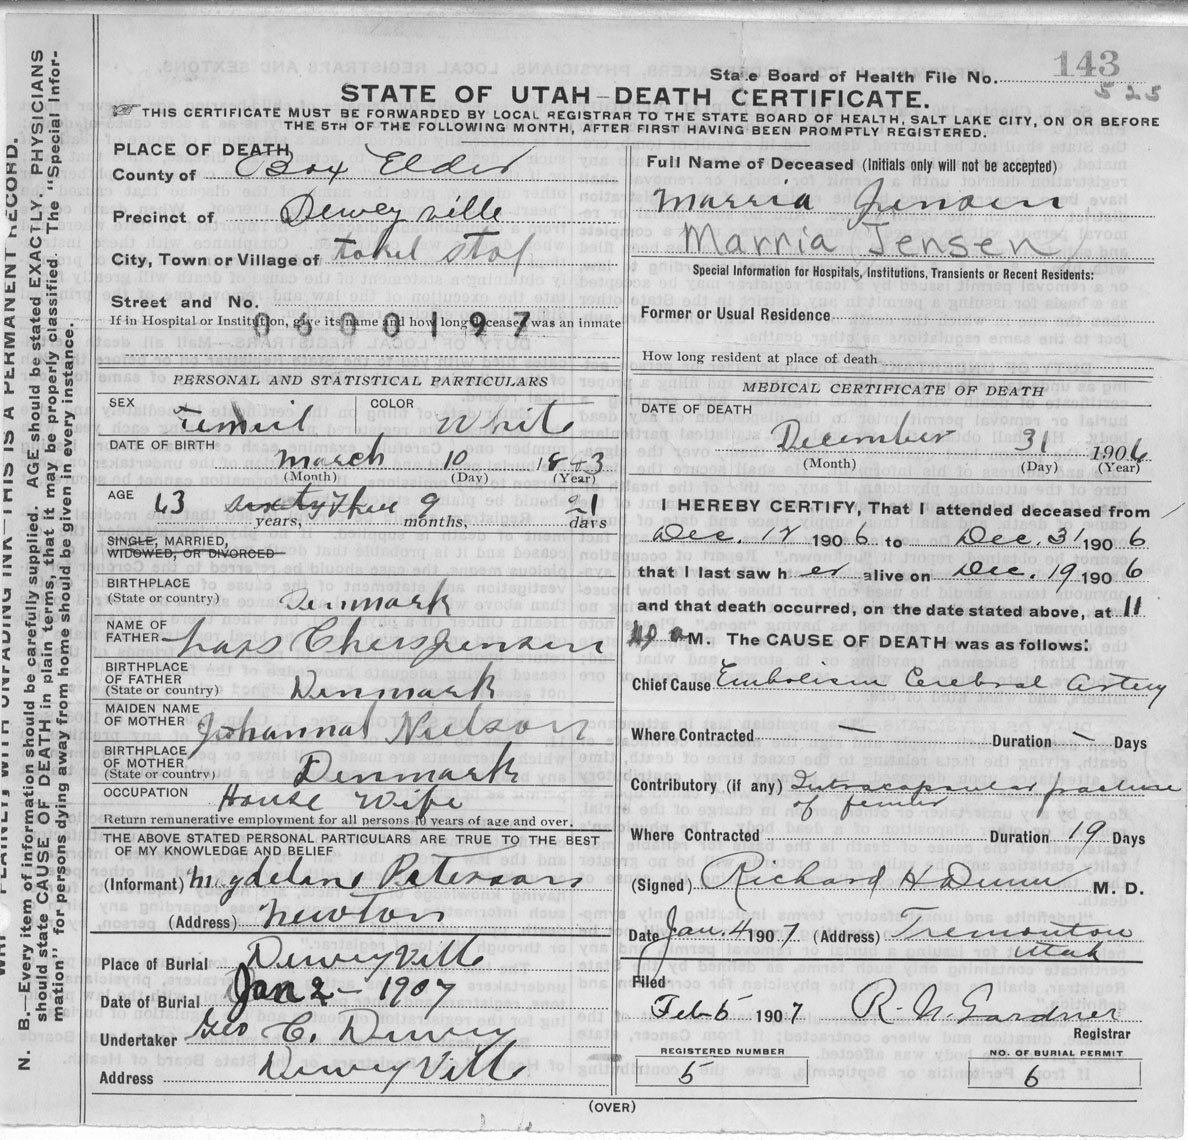 143
State Board of Health File No.
525
STATE OF UTAH—DEATH CERTIFICATE.
THIS CERTIFICATE MUST BE FORWARDED BY LOCAL REGISTRAR TO THE STATE BOARD OF HEALTH, SALT LAKE CITY, ON OR BEFORE
THE 5TH OF THE FOLLOWING MONTH, AFTER FIRST HAVING BEEN PROMPTLY REGISTERED.
N. B.—Every item of information should be carefully supplied. AGE should be stated EXACTLY. PHYSICIANS
should state CAUSE OF DEATH in plain terms, that it may be properly classified. The "Special Infor-
mation" for persons dying away from home should be given in every instance.
PLAINLY, WITH UNFADING INK—THIS IS A PERMANENT RECORD.
PLACE OF DEATH
County of Box Elder
Precinct of Dewey ville
City, Town or Village of
Street and No.
If in Hospital or Institution, give its name and how long deceased was an inmate
0600197
PERSONAL AND STATISTICAL PARTICULARS
SEX Femail COLOR White
DATE OF BIRTH
March 10 1843
(Month) (Day) (Year)
AGE 63 sixty three 9 21
years, months, days
SINGLE, MARRIED,
WIDOWED, OR DIVORCED
BIRTHPLACE
(State or country) Denmark
NAME OF
FATHER Lars
BIRTHPLACE
OF FATHER
(State or country) Denmark
MAIDEN NAME
OF MOTHER Johannah Nielson
BIRTHPLACE
OF MOTHER
(State or country) Denmark
OCCUPATION House Wife
Return remunerative employment for all persons 10 years of age and over.
THE ABOVE STATED PERSONAL PARTICULARS ARE TRUE TO THE BEST
OF MY KNOWLEDGE AND BELIEF
(Informant) Magdeline Peterson
(Address) Newton
Place of Burial Dewey Ville
Date of Burial Jan 2 - 1907
Undertaker Geo C. Dewey
Address Dewey Ville
Full Name of Deceased (Initials only will not be accepted)
Marria Jenson
Marria Jensen
Special Information for Hospitals, Institutions, Transients or Recent Residents:
Former or Usual Residence
How long resident at place of death
MEDICAL CERTIFICATE OF DEATH
DATE OF DEATH
December 31 1906
(Month) (Day) (Year)
I HEREBY CERTIFY, That I attended deceased from
Dec. 12 1906. to Dec. 31 1906
that I last saw her alive on Dec. 19. 1906
and that death occurred, on the date stated above, at 11
a M. The CAUSE OF DEATH was as follows:
Chief Cause Embolism Cerebral artery
Where Contracted — Duration — Days
Contributory (if any) Intracapsular fracture
of femur
Where Contracted Duration 19 Days
(Signed) Richard H Dunn M. D.
Date Jan. 4 1907. (Address) Tremonton
Utah
Filed
Feb 6 1907 R. N. Gardner
Registrar
REGISTERED NUMBER
5
NO. OF BURIAL PERMIT
6
(OVER)